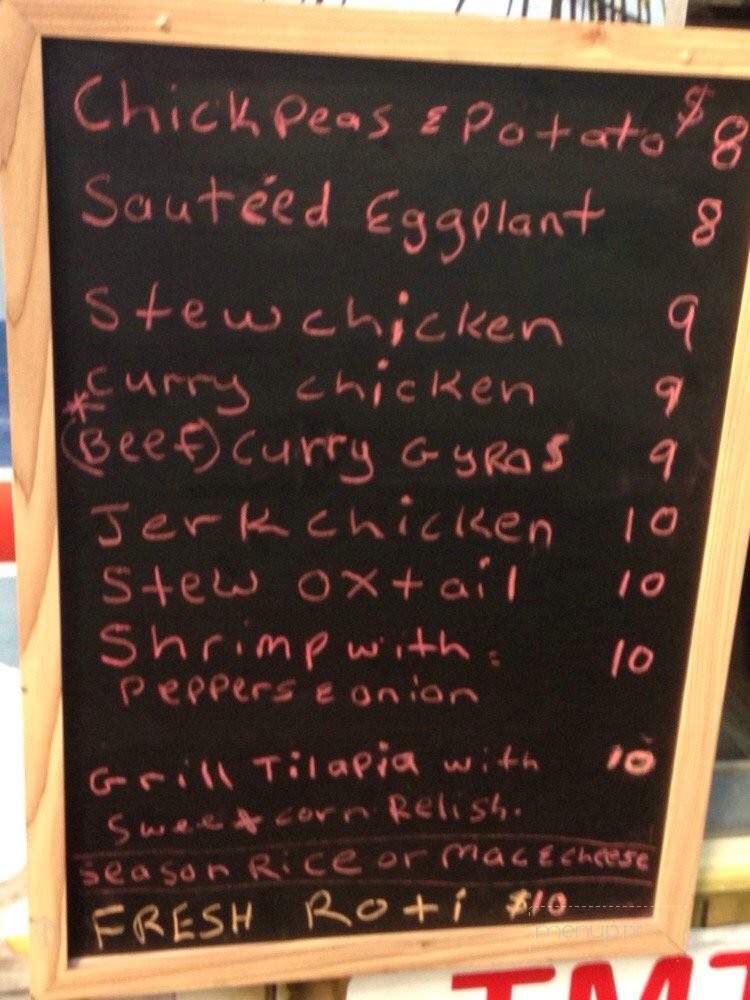 Chickpeas & Potato $8
Sautéed Eggplant 8
Stew chicken 9
*Curry chicken 9
(Beef) Curry Gyros 9
Jerk chicken 10
Stew oxtail 10
Shrimp with: 10
Peppers & onion
Grill Tilapia with 10
Sweet corn Relish.
Season Rice or Mac & cheese
FRESH Roti $10
menupix